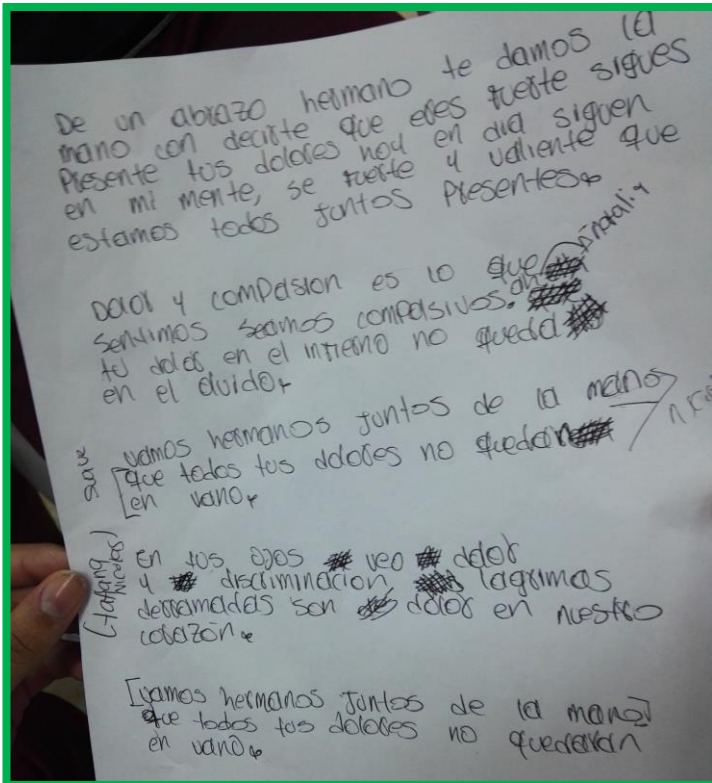 De un abrazo hermano te damos la
mano con decirte que eres fuerte sigues
Presente tus dolores hoy en dia siguen
en mi mente, se fuerte y valiente que
estamos todos juntos presentes.
Dolor y compasion es lo que
sentimos seamos compasivos.
tu dolor en el infierno no queda
en el olvido.
vamos hermanos juntos de la mano
que todos tus dolores no quedan
en vano.
En tus ojos veo dolor
y discriminacion lagrimas
derramadas son dolor en nuestro
corazón.
[vamos hermanos juntos de la mano]
que todos tus dolores no quedaran
en vano.